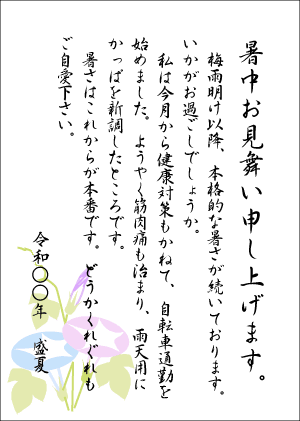 暑中お見舞い申し上げます。
梅雨明け以降、本格的な暑さが続いております。
いかがお過ごしでしょうか。
私は今月から健康対策もかねて、自転車通勤を
始めました。ようやく筋肉痛も治まり、雨天用に
かっぱを新調したところです。
暑さはこれからが本番です。どうかくれぐれも
ご自愛下さい。
令和〇〇年 盛夏